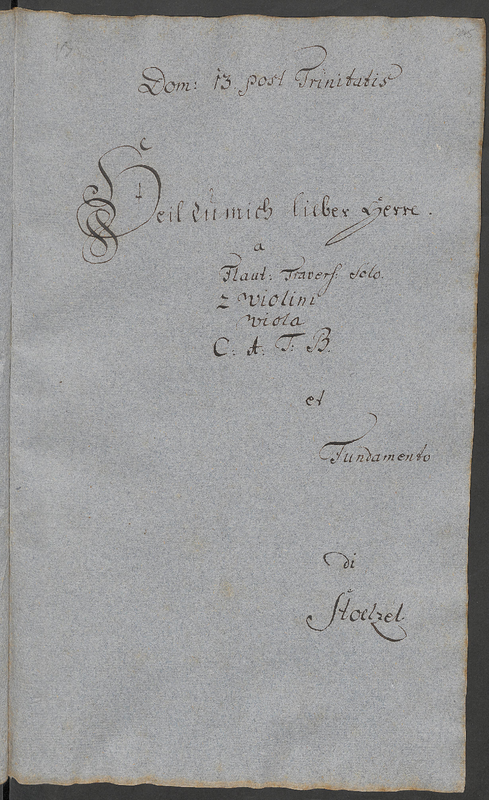 Dom: 13. post Trinitatis
Heil du mich lieber Herre.
a
Flaut: Travers: Solo.
2 Violini
Viola
C. A. T. B.
et
Fundamento
di
Stoelzel